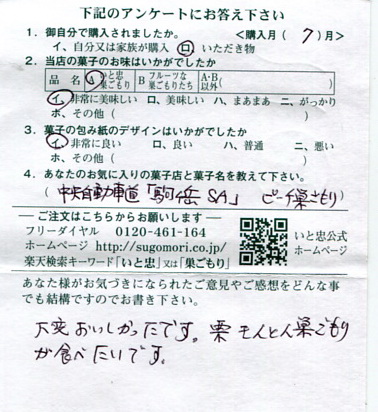 下記のアンケートにお答え下さい
1. 御自分で購入されましたか。 <購入月( 7 )月>
イ、自分又は家族が購入 ロ、いただき物
2. 当店の菓子のお味はいかがでしたか
品 名 A いと忠巣ごもり B フルーツな巣ごもりたち A・B以外( )
イ、非常に美味しい ロ、美味しい ハ、まあまあ ニ、がっかり
ホ、その他( )
3. 菓子の包み紙のデザインはいかがでしたか
イ、非常に良い ロ、良い ハ、普通 ニ、悪い
ホ、その他( )
4. あなたのお気に入りの菓子店と菓子名を教えて下さい。
(中央自動車道「駒岳SA」 ピーチ巣ごもり)
ご注文はこちらからお願いします
フリーダイヤル 0120-461-164
ホームページ http://sugomori.co.jp/
楽天検索キーワード「いと忠」又は「巣ごもり」
いと忠公式
ホームページ
あなた様がお気づきになられたご意見やご感想をどんな事
でも結構ですのでお書き下さい。
大変おいしかったです。栗モンとん巣ごもり
が食べたいです。